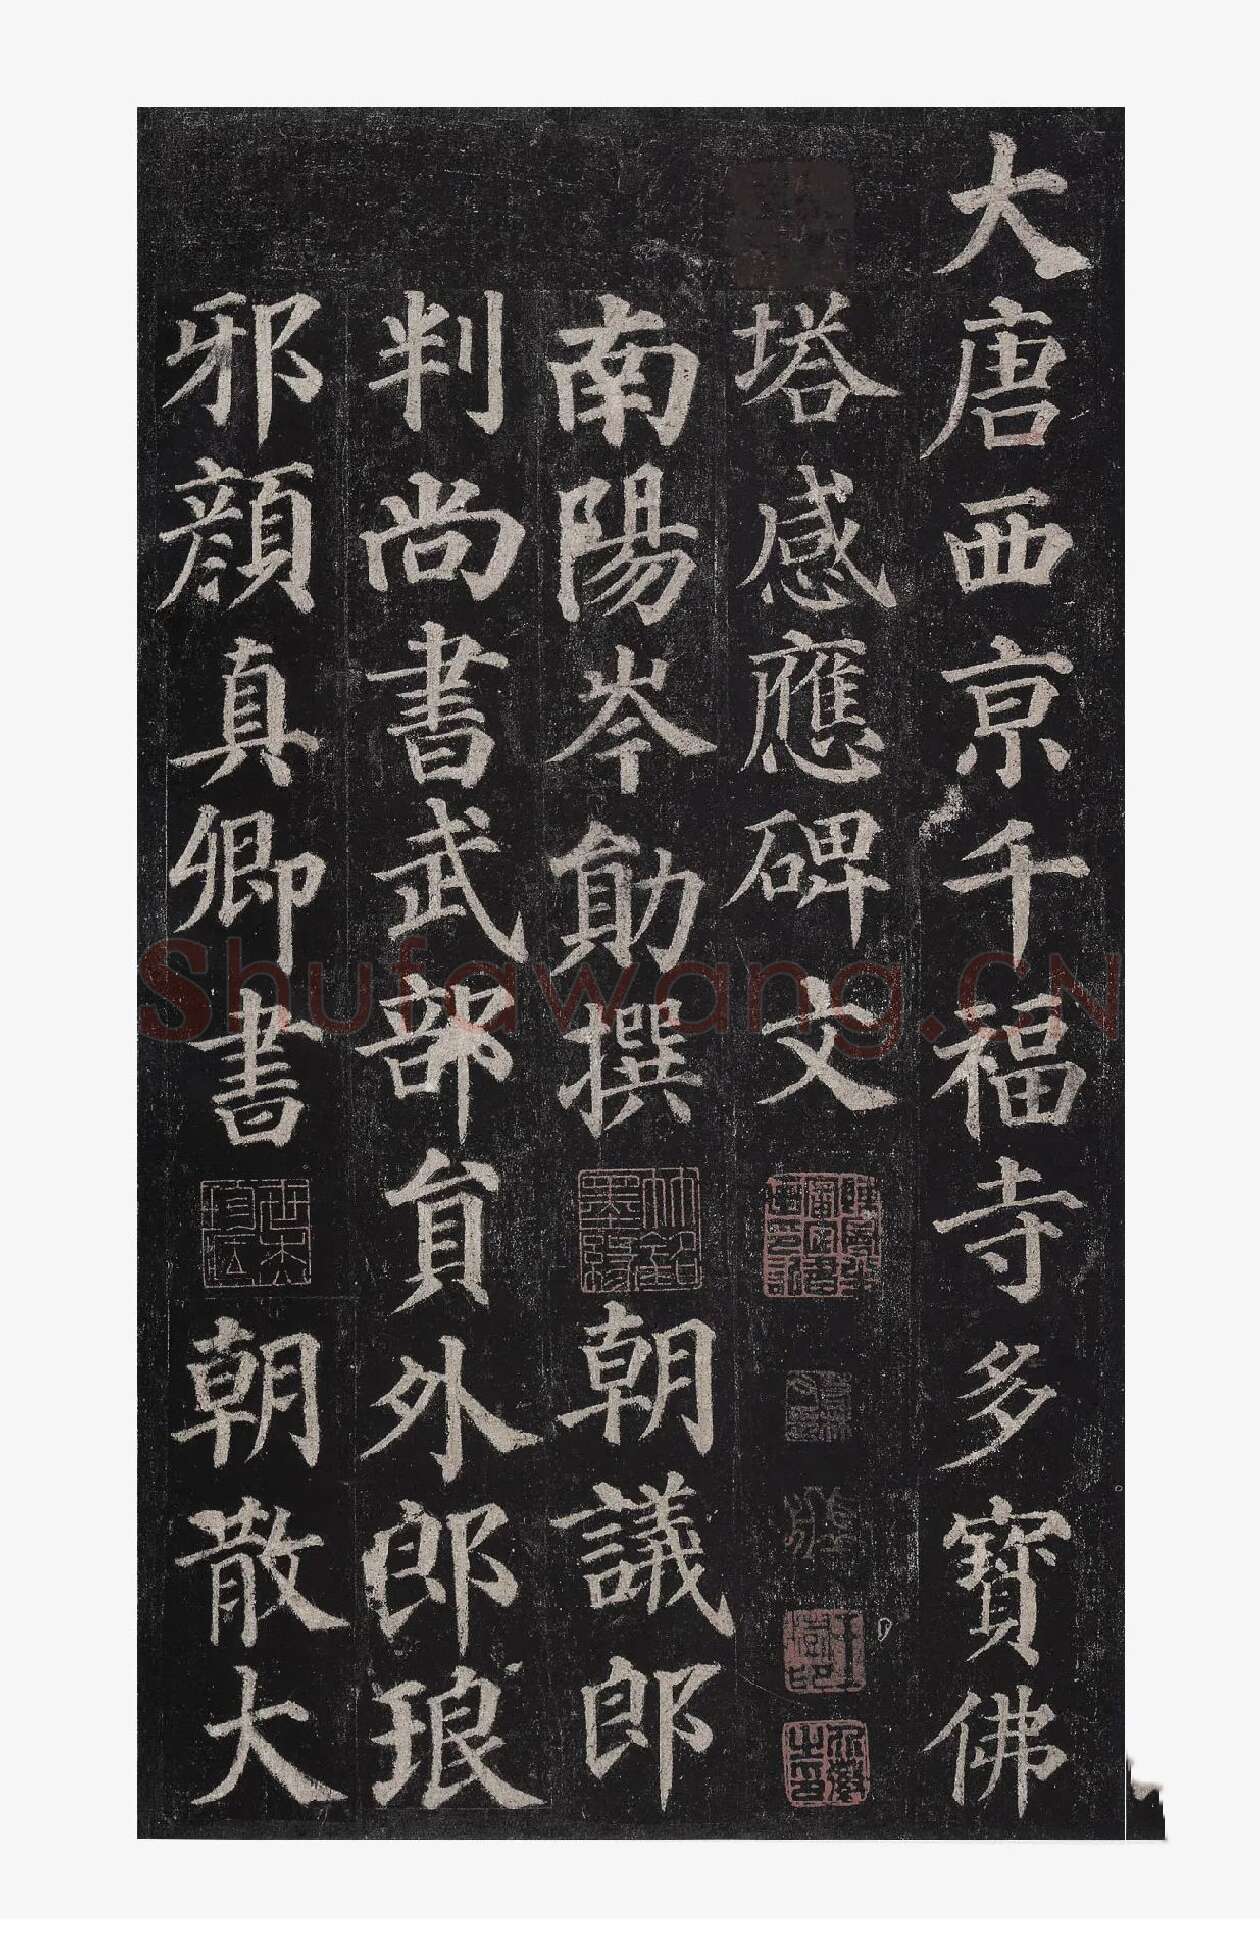 大唐西京千福寺多寶佛
塔感應碑文
南陽岑勛撰 朝議郎
判尚書武部員外郎琅
邪顏真卿書 朝散大
Shufawang.CN